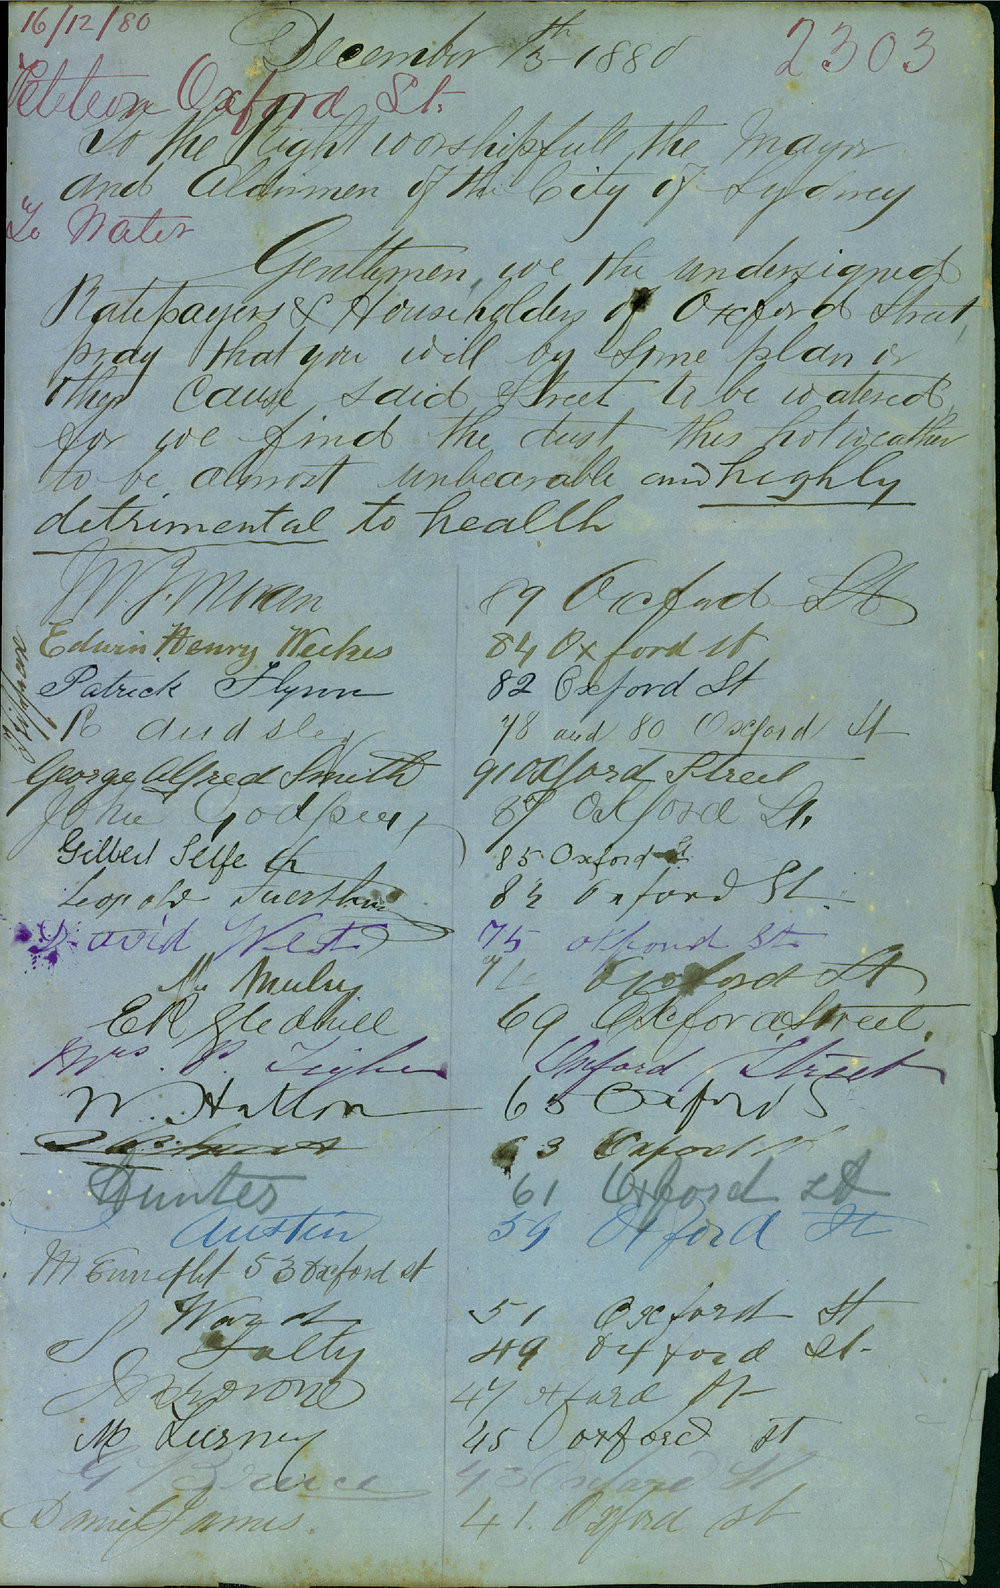 16/12/80
December 13th 1880
2303
Petition Oxford St.
To the Right worshipfull the Mayor
and Aldermen of the City of Sydney
To Water
Gentlemen, we the undersigned
Ratepayers & Householders of Oxford Street
pray that you will by some plan or
other cause said Street to be watered
for we find the dust this hot weather
to be almost unbearable and highly
detrimental to health
W. J. Moran 89 Oxford St
Edwin Henry Weekes 84 Oxford st
Patrick Flynn 82 Oxford St
R Audsley 78 and 80 Oxford St
George Alfred Smith 91 Oxford Street
John Godfrey 87 Oxford St.
Gilbert Selfe 85 Oxford St
Leopold Oxford St.
David West 75 oxford St
Mulry Oxford St
E R Gledhill 69 Oxford Street.
Mrs. P. Tighe Oxford Street
W. Hatton 65 Oxford S
63 Oxford st
Hunter 61 Oxford st
Austin 59 Oxford St
53 Oxford st
Ward 51 Oxford St
49 Oxford St
47 oxford St
45 oxford st
G Bruce 43 Oxford St
Daniel James. 41. Oxford st